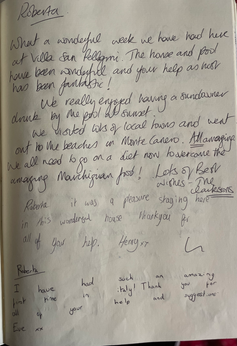 Roberta
What a wonderful week we have had here
at Villa San Pellegrini The house and pool
have been wonderful and your help as host
has been fantastic!
We really enjoyed having a sundowner
drink by the pool at sunset.
We visited lots of local towns and went
out to the beaches in Monte Conero.
We all need to go on a diet now to overcome the
amazing Marchigian food! Lots of Best
wishes - The
Clarksons
Roberta it was a pleasure staying here
in this wonderful house thankyou for
all of your help. Henry xx
Roberta
I have had such an amazing
first time in Italy! Thank you for
all of your help and
Eve xx